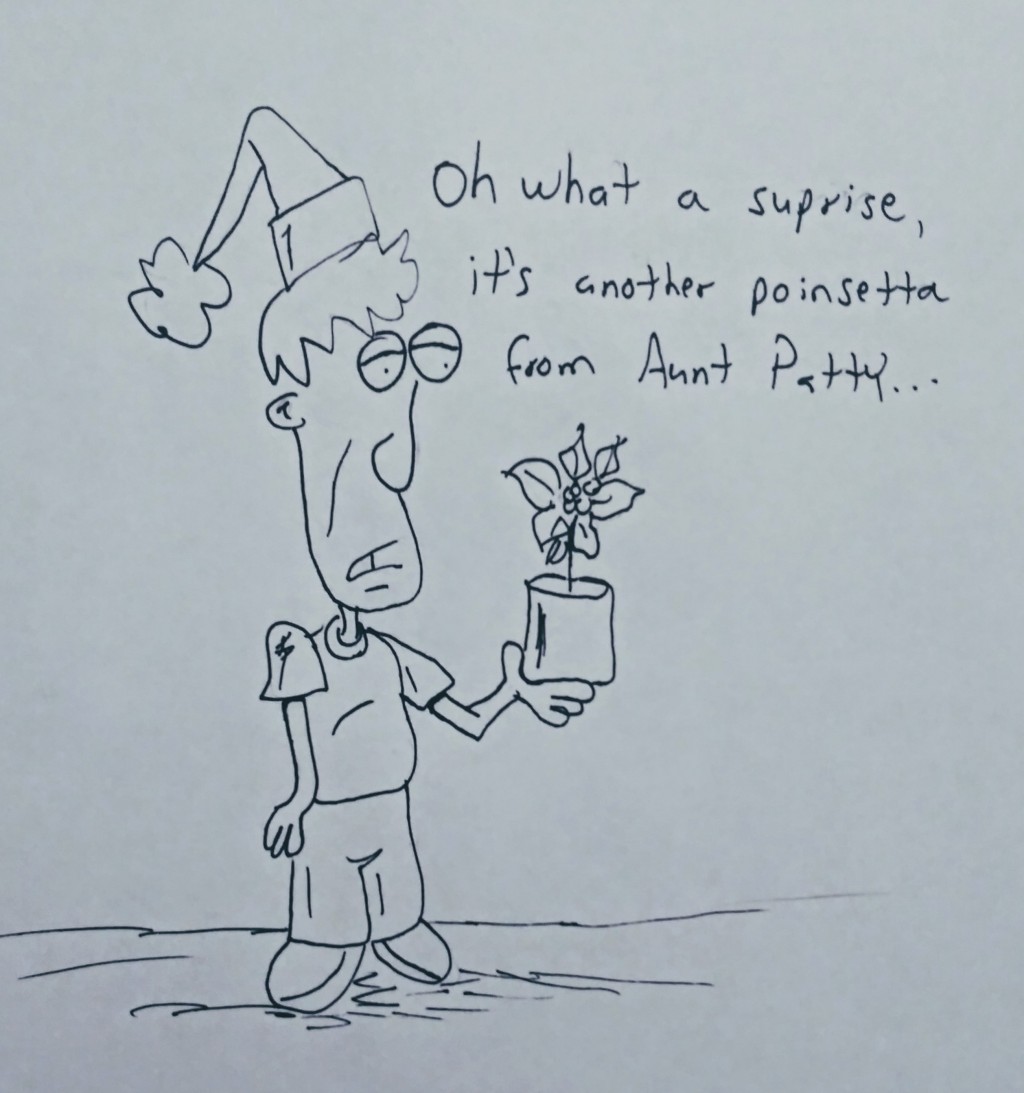 Oh what a suprise,
it's another poinsetta
from Aunt Patty...